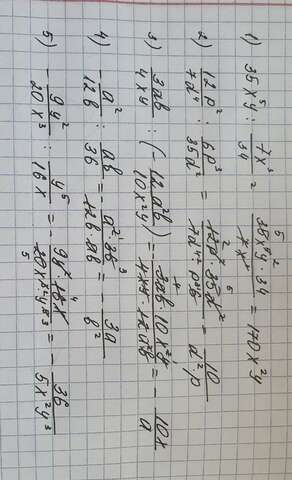 1) 35x⁵y : 7x³/34 = 35x⁵y · 34 / 7x³ = 170x²y
2) 12p² / 7d⁴ : 6p³ / 35d² = 12p² 35d² / 7d⁴ · p³6 = 10 / d²p
3) 3ab / 4xy : (- 12a²b / 10x²y) = - 3ab 10x²y / 4xy · 12a²b = - 10x / a
4) - a² / 12b : ab / 36 = - a² · 36 / 12b · ab = - 3a / b²
5) - 9y² / 20x³ : y⁵ / 16x = - 9y² · 16x / 20x³ · y⁵ = - 36 / 5x²y³